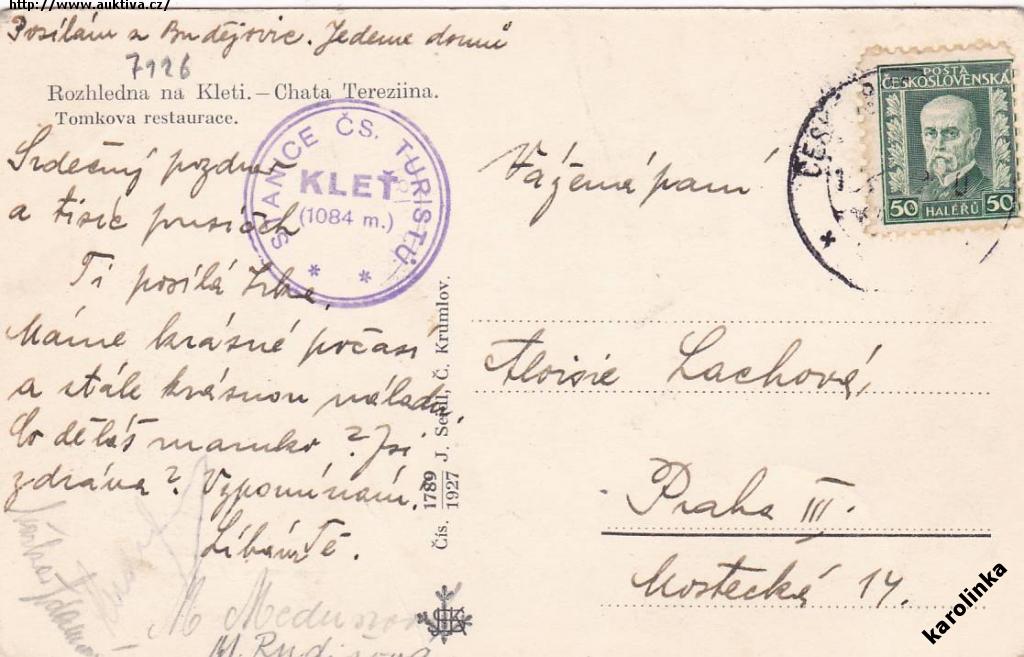 http://www.auktiva.cz/
Posílám z Budějovic. Jedeme domů
7126
Rozhledna na Kleti. — Chata Tereziina.
Tomkova restaurace.
STANICE ČS. TURISTŮ
KLEŤ
(1084 m.)
* *
Srdečný pozdrav
a tisíc pusiček
Ti posílá
Máme krásné počasí
a stále krásnou náladu.
Co děláš mamko? Jsi
zdráva? Vzpomínám.
Líbám Tě.
M. Rudišova
Čís. 1789 1927 J. Seidl, Č. Krumlov.
POŠTA
ČESKOSLOVENSKÁ
50 HALÉŘŮ 50
Vážená paní
Aloisie Lachová,
Praha III.
Mostecká 14.
karolinka